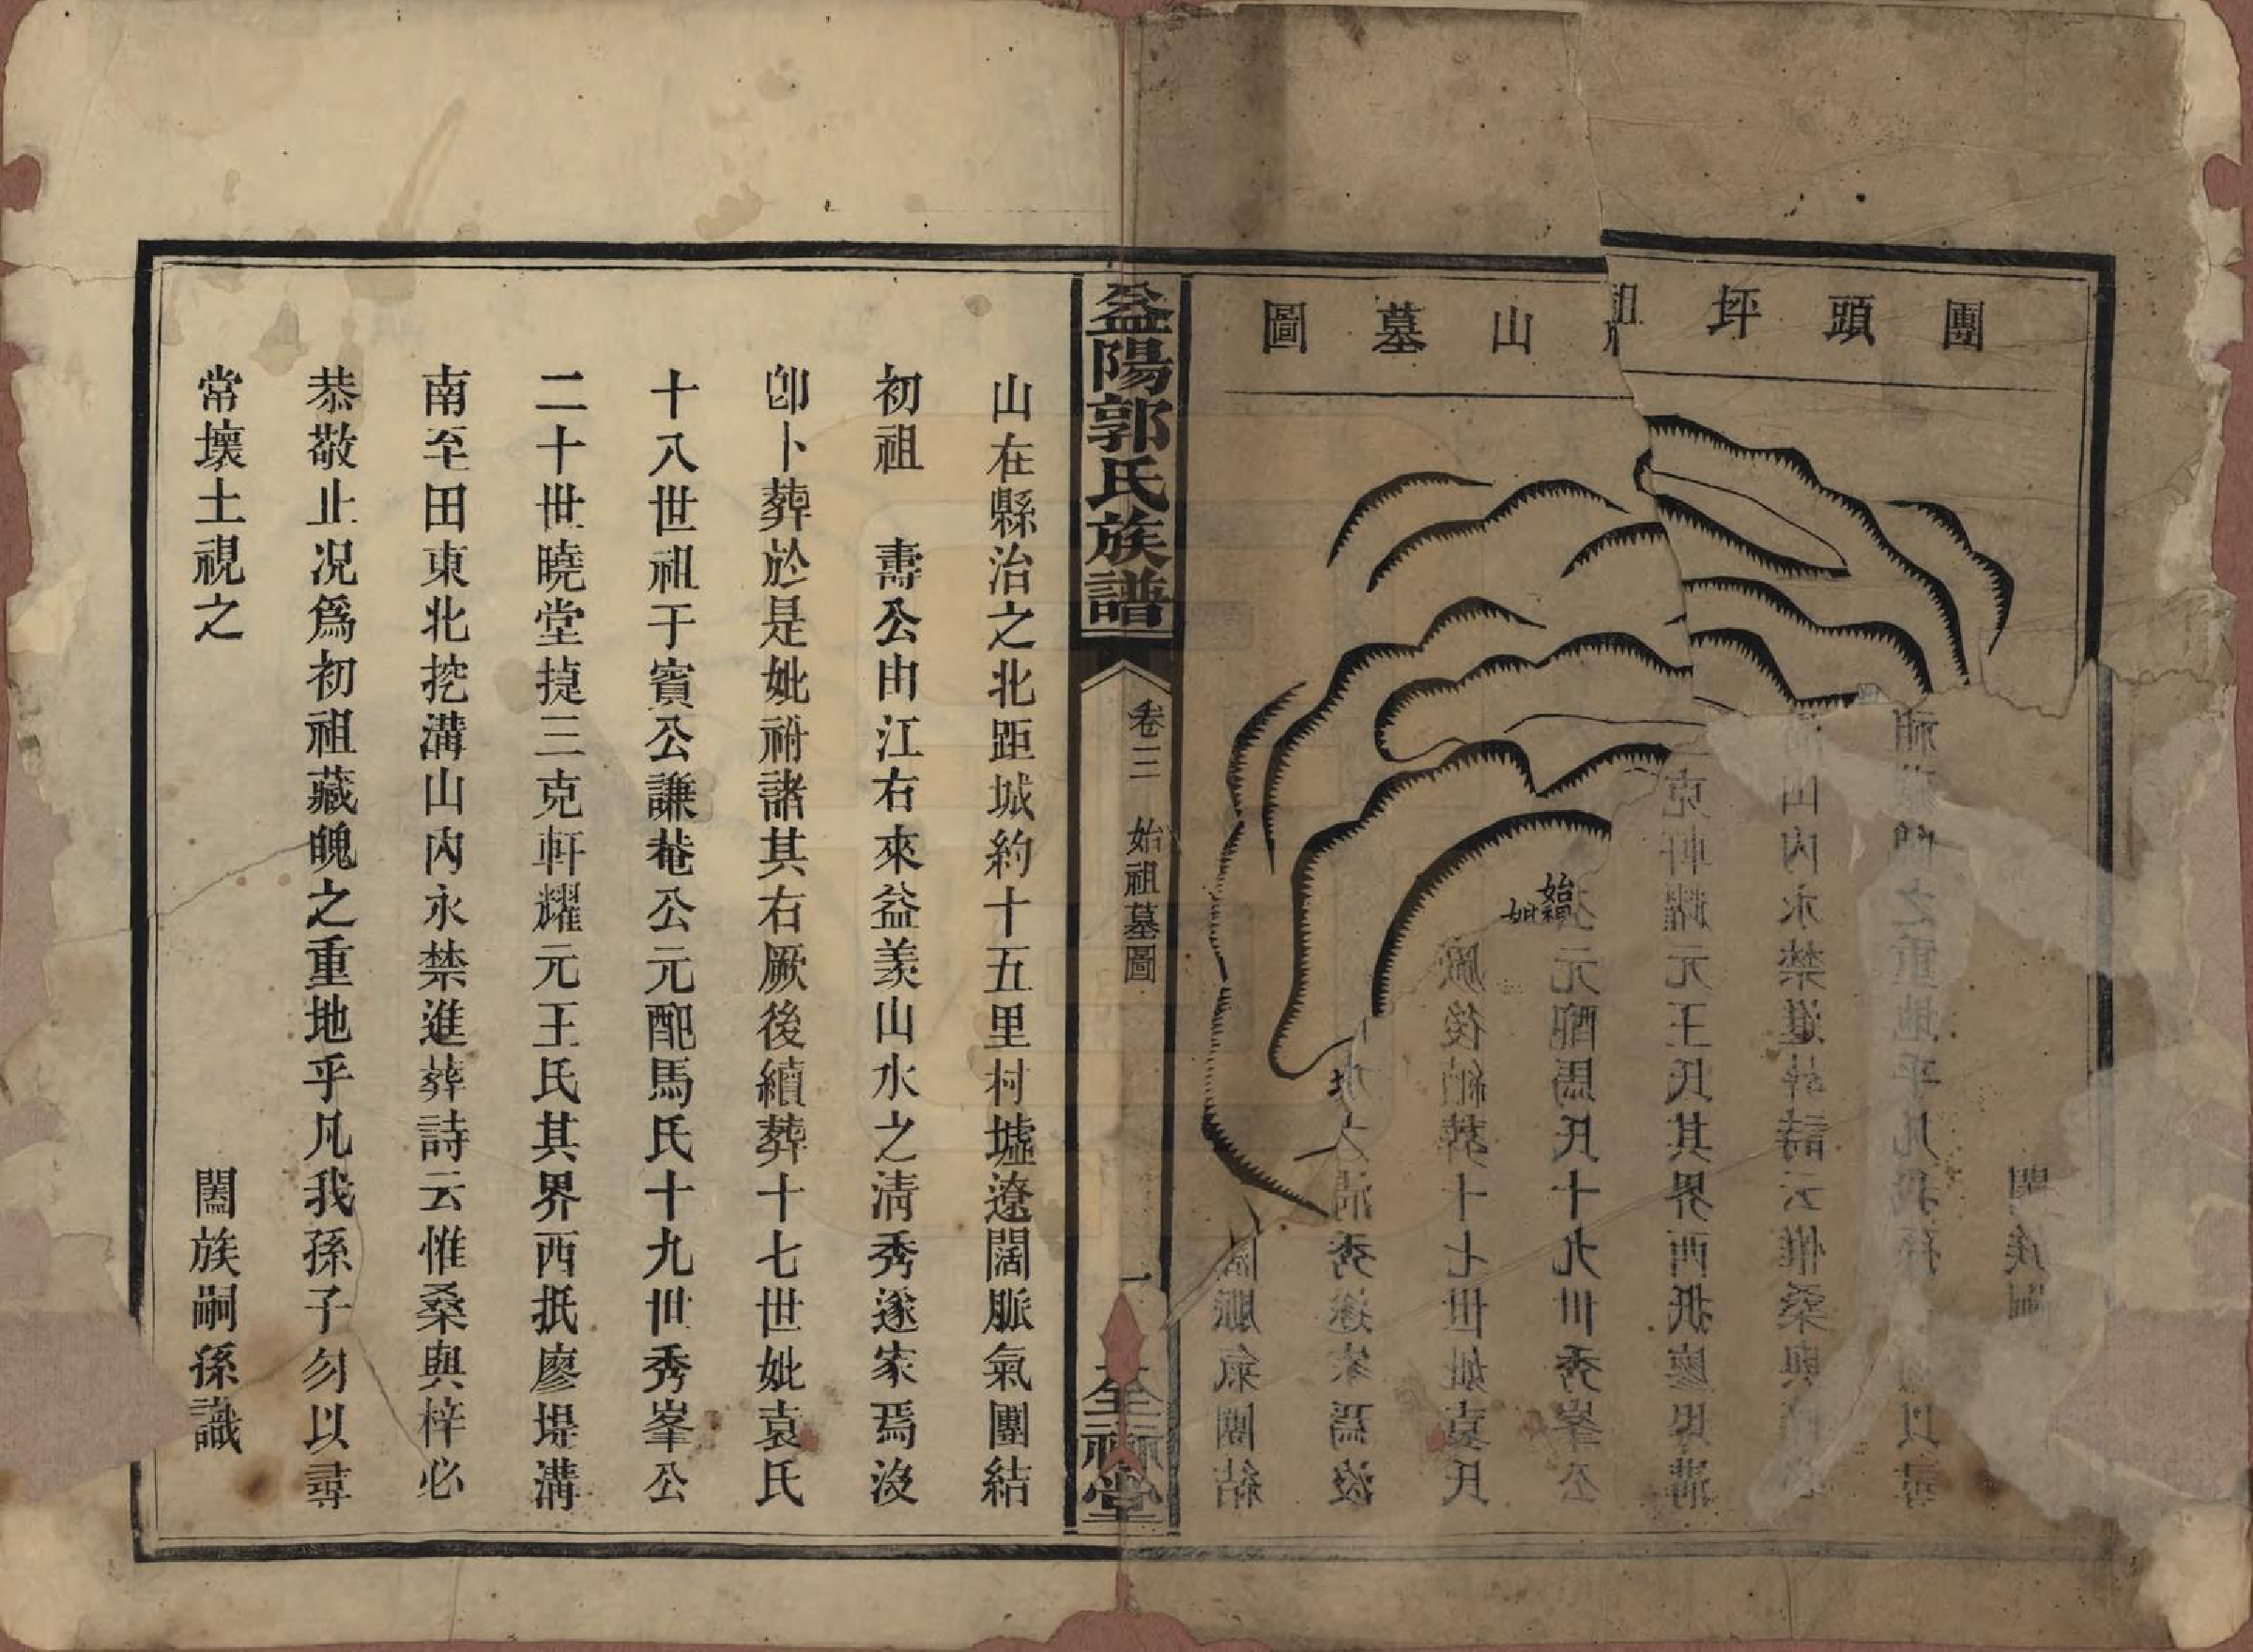 團頭坪祖山墓圖
始祖
妣
益陽郭氏族譜
卷三 始祖墓圖
一
堂
山在縣治之北距城約十五里村墟遼闊脈氣團結
初祖 壽公由江右來益羨山水之淸秀遂家焉沒
卽卜葬於是妣祔諸其右厥後續葬十七世妣袁氏
十八世祖于賓公謙菴公元配馬氏十九世秀峯公
二十世曉堂㨗三克軒耀元王氏其界西抵廖堤溝
南至田東北挖溝山內永禁進葬詩云惟桑與梓必
恭敬止况爲初祖藏魄之重地乎凡我孫子勿以尋
常壞土視之
闔族嗣孫識